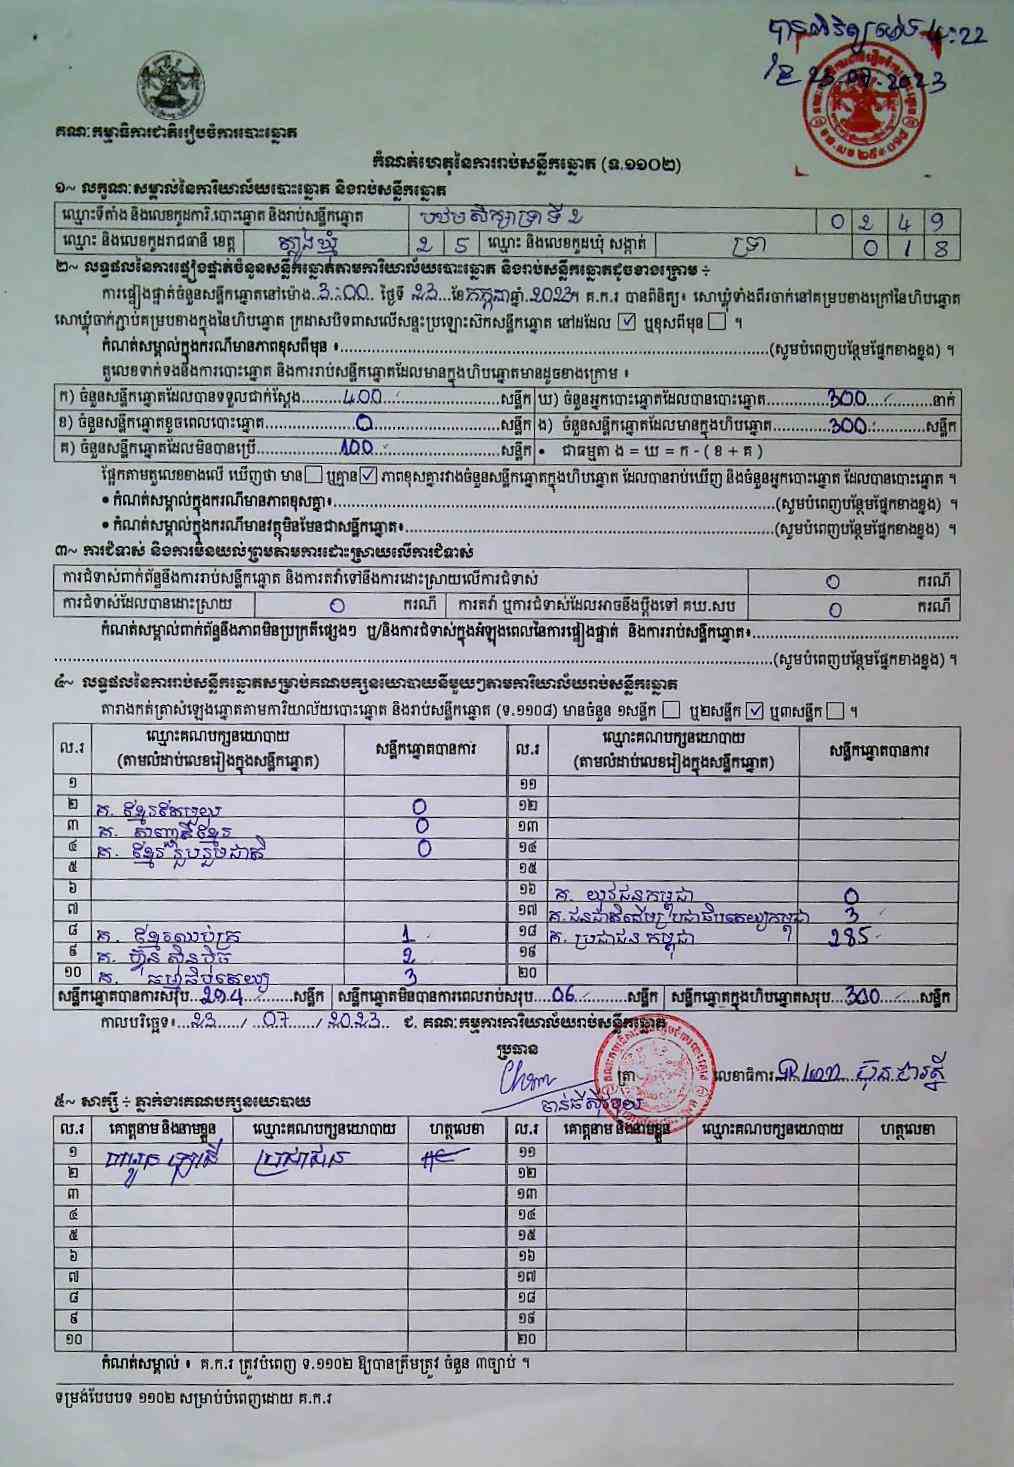 គណៈកម្មាធិការជាតិរៀបចំការបោះឆ្នោត
កំណត់ហេតុនៃការរាប់សន្លឹកឆ្នោត (ទ.១១០២)
១~ លក្ខណៈសម្គាល់នៃការិយាល័យបោះឆ្នោត និងរាប់សន្លឹកឆ្នោត
ឈ្មោះទីតាំង និងលេខកូដការិ.បោះឆ្នោត និងរាប់សន្លឹកឆ្នោត បឋមសិក្សាទ្រា ទី 2 0 2 4 9
ឈ្មោះ និងលេខកូដរាជធានី ខេត្ត ត្បូងឃ្មុំ 2 5 ឈ្មោះ និងលេខកូដឃុំ សង្កាត់ ទ្រា 0 1 8
២~ លទ្ធផលនៃការផ្ទៀងផ្ទាត់ចំនួនសន្លឹកឆ្នោតតាមការិយាល័យបោះឆ្នោត និងរាប់សន្លឹកឆ្នោតដូចខាងក្រោម ÷
ការផ្ទៀងផ្ទាត់ចំនួនសន្លឹកឆ្នោតនៅម៉ោង 3:00 ថ្ងៃទី 23 ខែកក្កដា ឆ្នាំ 2023។ គ.ក.រ បានពិនិត្យ៖ សោឃ្លុំទាំងពីរចាក់នៅគម្របខាងក្រៅនៃហិបឆ្នោត
សោឃ្លុំចាក់ភ្ជាប់គម្របខាងក្នុងនៃហិបឆ្នោត ក្រដាសបិទពាសលើសន្ទះប្រឡោះសិកសន្លឹកឆ្នោត នៅដដែល ☑ ឬខុសពីមុន ☐ ។
កំណត់សម្គាល់ក្នុងករណីមានភាពខុសពីមុន ៖ (សូមបំពេញបន្ថែមផ្នែកខាងខ្នង) ។
តួលេខទាក់ទងនឹងការបោះឆ្នោត និងការរាប់សន្លឹកឆ្នោតដែលមានក្នុងហិបឆ្នោតមានដូចខាងក្រោម ៖
ក) ចំនួនសន្លឹកឆ្នោតដែលបានទទួលជាក់ស្តែង 400 សន្លឹក ឃ) ចំនួនអ្នកបោះឆ្នោតដែលបានបោះឆ្នោត 300 នាក់
ខ) ចំនួនសន្លឹកឆ្នោតខូចពេលបោះឆ្នោត 0 សន្លឹក ង) ចំនួនសន្លឹកឆ្នោតដែលមានក្នុងហិបឆ្នោត 300 សន្លឹក
គ) ចំនួនសន្លឹកឆ្នោតដែលមិនបានប្រើ 100 សន្លឹក • ជាធម្មតា ង = ឃ = ក - ( ខ + គ )
ផ្អែកតាមតួលេខខាងលើ ឃើញថា មាន ☐ ឬគ្មាន ☑ ភាពខុសគ្នារវាងចំនួនសន្លឹកឆ្នោតក្នុងហិបឆ្នោត ដែលបានរាប់ឃើញ និងចំនួនអ្នកបោះឆ្នោត ដែលបានបោះឆ្នោត ។
• កំណត់សម្គាល់ក្នុងករណីមានភាពខុសគ្នា៖ (សូមបំពេញបន្ថែមផ្នែកខាងខ្នង) ។
• កំណត់សម្គាល់ក្នុងករណីមានវត្ថុមិនមែនជាសន្លឹកឆ្នោត៖ (សូមបំពេញបន្ថែមផ្នែកខាងខ្នង) ។
៣~ ការជំទាស់ និងការមិនយល់ព្រមតាមការដោះស្រាយលើការជំទាស់
ការជំទាស់ពាក់ព័ន្ធនឹងការរាប់សន្លឹកឆ្នោត និងការតវ៉ាទៅនឹងការដោះស្រាយលើការជំទាស់ 0 ករណី
ការជំទាស់ដែលបានដោះស្រាយ 0 ករណី ការតវ៉ា ឬការជំទាស់ដែលអាចនឹងប្តឹងទៅ គឃ.សប 0 ករណី
កំណត់សម្គាល់ពាក់ព័ន្ធនឹងភាពមិនប្រក្រតីផ្សេងៗ ឬ/និងការជំទាស់ក្នុងអំឡុងពេលនៃការផ្ទៀងផ្ទាត់ និងការរាប់សន្លឹកឆ្នោត៖
(សូមបំពេញបន្ថែមផ្នែកខាងខ្នង) ។
៤~ លទ្ធផលនៃការរាប់សន្លឹកឆ្នោតសម្រាប់គណបក្សនយោបាយនីមួយៗតាមការិយាល័យរាប់សន្លឹកឆ្នោត
តារាងកត់ត្រាសំឡេងឆ្នោតតាមការិយាល័យបោះឆ្នោត និងរាប់សន្លឹកឆ្នោត (ទ.១១០៨) មានចំនួន ១សន្លឹក ☐ ឬ២សន្លឹក ☑ ឬ៣សន្លឹក ☐ ។
ល.រ ឈ្មោះគណបក្សនយោបាយ (តាមលំដាប់លេខរៀងក្នុងសន្លឹកឆ្នោត) សន្លឹកឆ្នោតបានការ ល.រ ឈ្មោះគណបក្សនយោបាយ (តាមលំដាប់លេខរៀងក្នុងសន្លឹកឆ្នោត) សន្លឹកឆ្នោតបានការ
១ ១១
២ គ. ខ្មែរតែមួយ 0 ១២
៣ គ. សញ្ជាតិខ្មែរ 0 ១៣
៤ គ. ខ្មែររួបរួមជាតិ 0 ១៤
៥ ១៥
៦ ១៦ គ. យុវជនកម្ពុជា 0
៧ ១៧ គ.ជនជាតិដើម្បីប្រជាធិបតេយ្យកម្ពុជា 3
៨ គ. ខ្មែរឈប់ក្រ 1 ១៨ គ. ប្រជាជន កម្ពុជា 285
៩ គ. ហ្វ៊ុនស៊ិនប៉ិច 2 ១៩
១០ គ. ធម្មាធិបតេយ្យ 3 ២០
សន្លឹកឆ្នោតបានការសរុប 294 សន្លឹក សន្លឹកឆ្នោតមិនបានការពេលរាប់សរុប 06 សន្លឹក សន្លឹកឆ្នោតក្នុងហិបឆ្នោតសរុប 300 សន្លឹក
កាលបរិច្ឆេទ៖ 23 / 07 / 2023 ជ. គណៈកម្មការការិយាល័យរាប់សន្លឹកឆ្នោត
ប្រធាន
ត្រា លេខាធិការ
៥~ សាក្សី ÷ ភ្នាក់ងារគណបក្សនយោបាយ
ល.រ គោត្តនាម និងនាមខ្លួន ឈ្មោះគណបក្សនយោបាយ ហត្ថលេខា ល.រ គោត្តនាម និងនាមខ្លួន ឈ្មោះគណបក្សនយោបាយ ហត្ថលេខា
១ ប្រជាជន ១១
២ ១២
៣ ១៣
៤ ១៤
៥ ១៥
៦ ១៦
៧ ១៧
៨ ១៨
៩ ១៩
១០ ២០
កំណត់សម្គាល់ ៖ គ.ក.រ ត្រូវបំពេញ ទ.១១០២ ឱ្យបានត្រឹមត្រូវ ចំនួន ៣ច្បាប់ ។
ទម្រង់បែបបទ ១១០២ សម្រាប់បំពេញដោយ គ.ក.រ